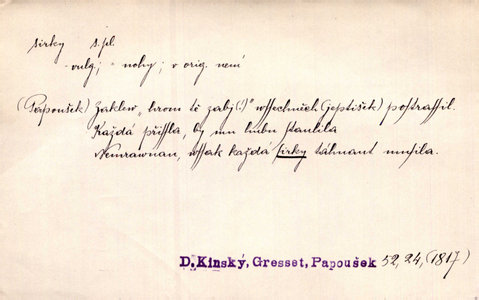 sirky s. pl.
vulg.; = nohy; v orig. není
(Papoušek) Zaklew „hrom tě zabj (!)“ wssechněch Geptišek) postrassil.
Každá přissla, by mu hubu stanlila
Nemrawnau, wssak každá sirky táhnaut musila.
D. Kinský, Gresset, Papoušek 52, 24, (1817)